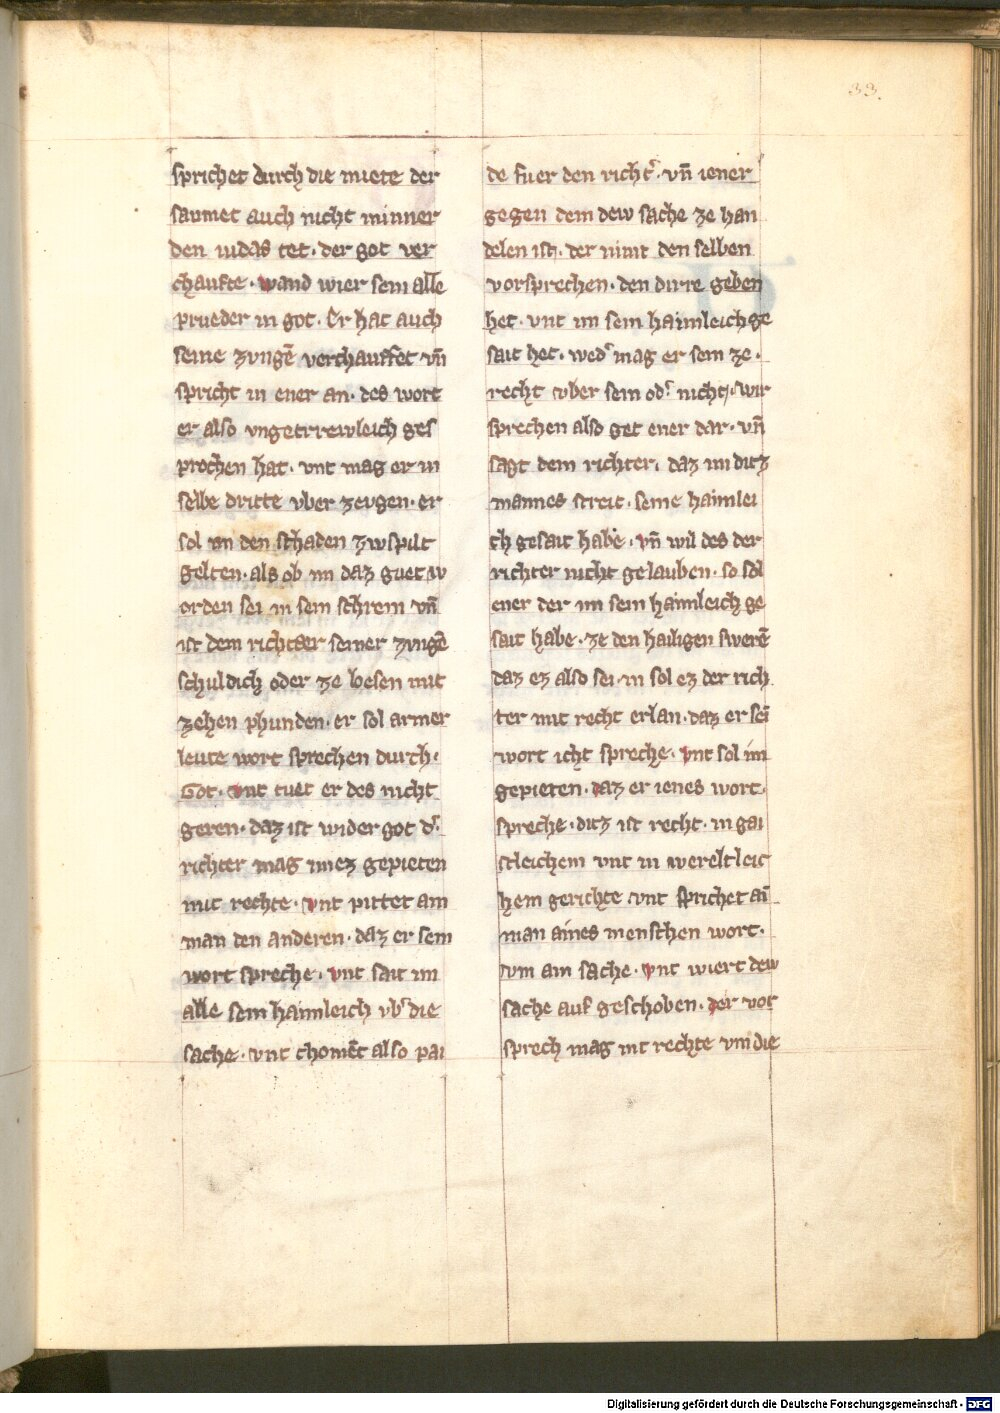 33.
sprichet durch die miete der
saumet auch nicht minner
den iudas tet · der got ver
chaufte · wand wier sein alle
prueder in got · Er hat auch
seine zvngē verchauffet vn̄
spricht in ener an · des wort
er also vngetrrewleich ges
prochen hat · vnt mag er in
selbe dritte vber zevgen · er
sol im den schaden zwspilt
gelten · als ob im daz guet w
orden sei in sein schrein vn̄
ist dem richtær seiner zvngē
schuldich oder ze lœsen mit
zehen phunden · er sol armer
leute wort sprechen durch ·
Got · vnt tuet er des nicht
geren · daz ist wider got d'·
richter mag imez gepieten
mit rechte · vnt pittet ain
man den anderen · daz er sein
wort spreche · vnt sait im
alle sein haimleich vb' die
sache · vnt chomēt also pai
de fuer den richt' · vn̄ iener
gegen dem dew sache ze han
delen ist · der nimt den selben
vorsprechen · den dirre geben
het · vnt im sein haimleich ge
sait het · wed' mag er sein ze ·
recht vber sein od' nicht · wir
sprechen also get ener dar · vn̄
sagt dem richter · daz im ditz
mannes streit · seine haimlei
ch gesait habe · vn̄ wil des der
richter nicht gelauben · so sol
ener der im sein haimleich ge
sait habe · ze den hailigen swerē
daz ez also sei · in sol ez der rich
ter mit recht erlan · daz er sei
wort icht spreche · vnt sol im
gepieten · daz er ienes wort ·
spreche · ditz ist recht · in gai
stleichem vnt in wereltleic
hem gerichte · vnt sprichet ai
man aines menschen wort ·
vm ain sache · vnt wiert dew
sache auf geschoben · der vor
sprech mag mt rechte vm die
Digitalisierung gefördert durch die Deutsche Forschungsgemeinschaft - DFG